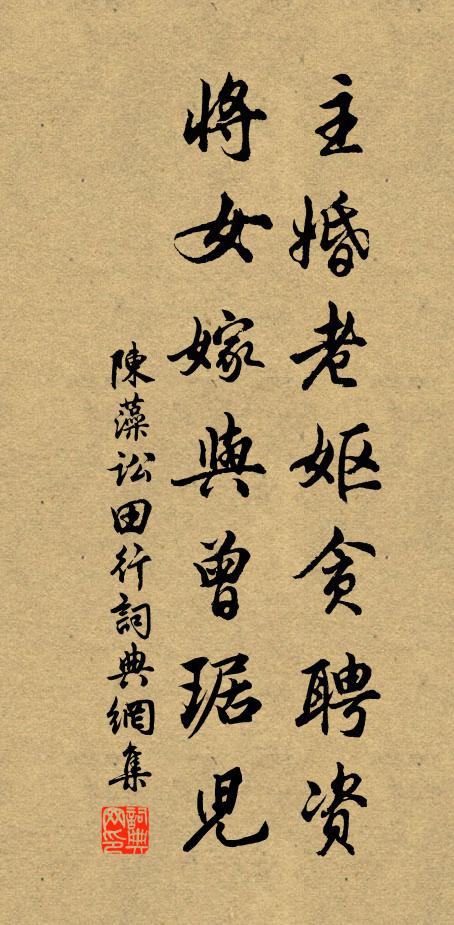 主婚老妪貪聘资
將女嫁與曾琚兒
陳藻訟田行詞典網集
詞典網印